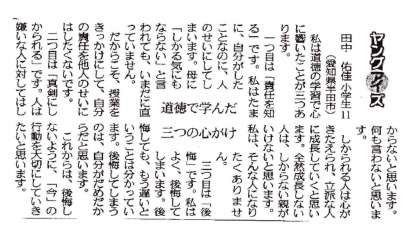 ヤングアイズ
田中 佑佳 小学生 11
(愛知県半田市)
道徳で学んだ
三つの心がけ
私は道徳の学習で心
に響いたことが三つあ
ります。
一つ目は「責任を知
る」です。私はたま
に、自分がした
ことなのに、人
のせいにしてし
まいます。母に
「しかる気にも
ならない」と言
われても、いまだに直
っていません。
だからこそ、授業を
きっかけにして、自分
の責任を他人のせいに
はしたくないです。
二つ目は「真剣にし
かられる」です。人は
嫌いな人に対してはし
からないと思います。
何も言わないと思いま
す。
しかられる人は心が
きたえられ、立派な人
に成長していくと思い
ます。全然成長しない
人は、しからない親が
いけないと思います。
私は、そんな人になり
たくありませ
ん。
三つ目は「後
悔」です。私は
よく、後悔して
しまいます。後
悔しても、もう遅いと
いうことは分かってい
ます。後悔してしまう
のは、自分がだめだか
らだと思います。
これからは、後悔し
ないように、「今」の
行動を大切にしていき
たいと思います。